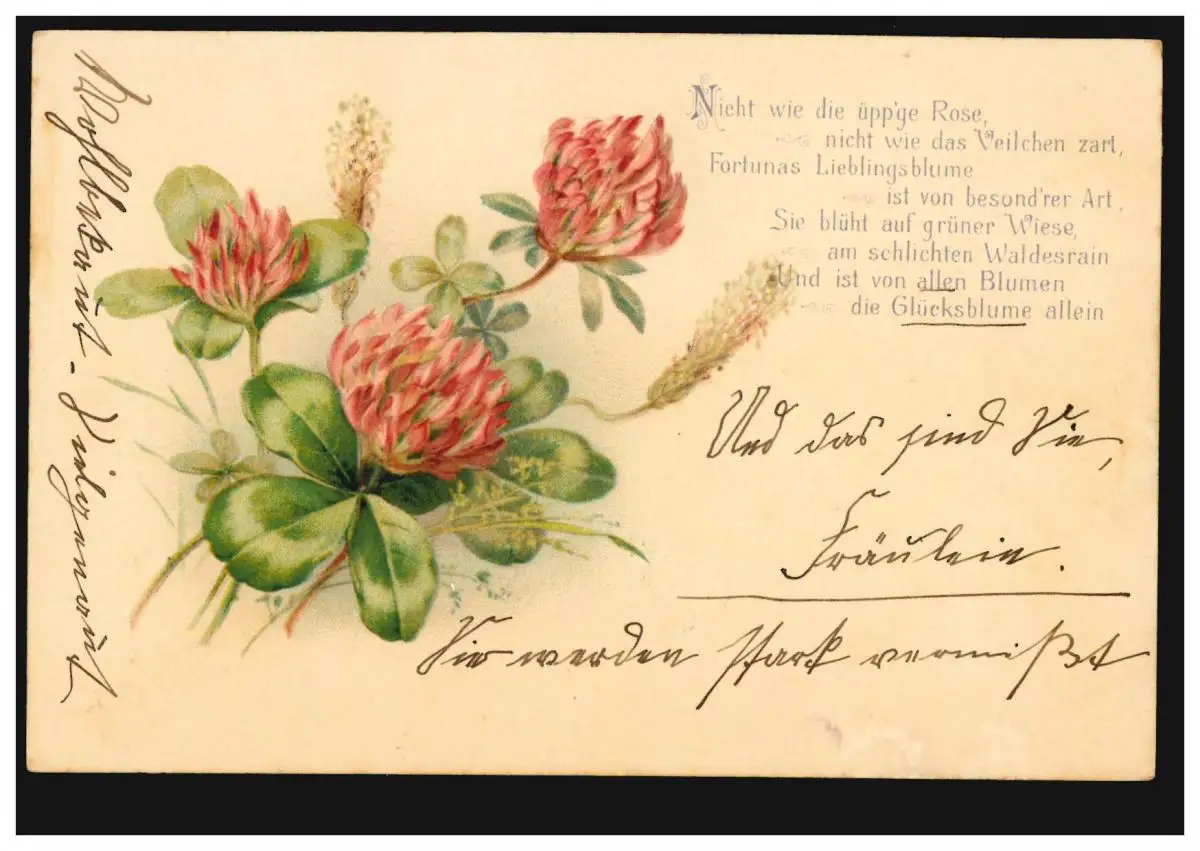 Nicht wie die üpp'ge Rose,
nicht wie das Veilchen zart,
Fortunas Lieblingsblume
ist von besond'rer Art,
Sie blüht auf grüner Wiese,
am schlichten Waldesrain
Und ist von allen Blumen
die Glücksblume allein
Und das sind Sie,
Fräulein.
Sie werden stark vermißt
Wohlbekannt - Vielgenannt